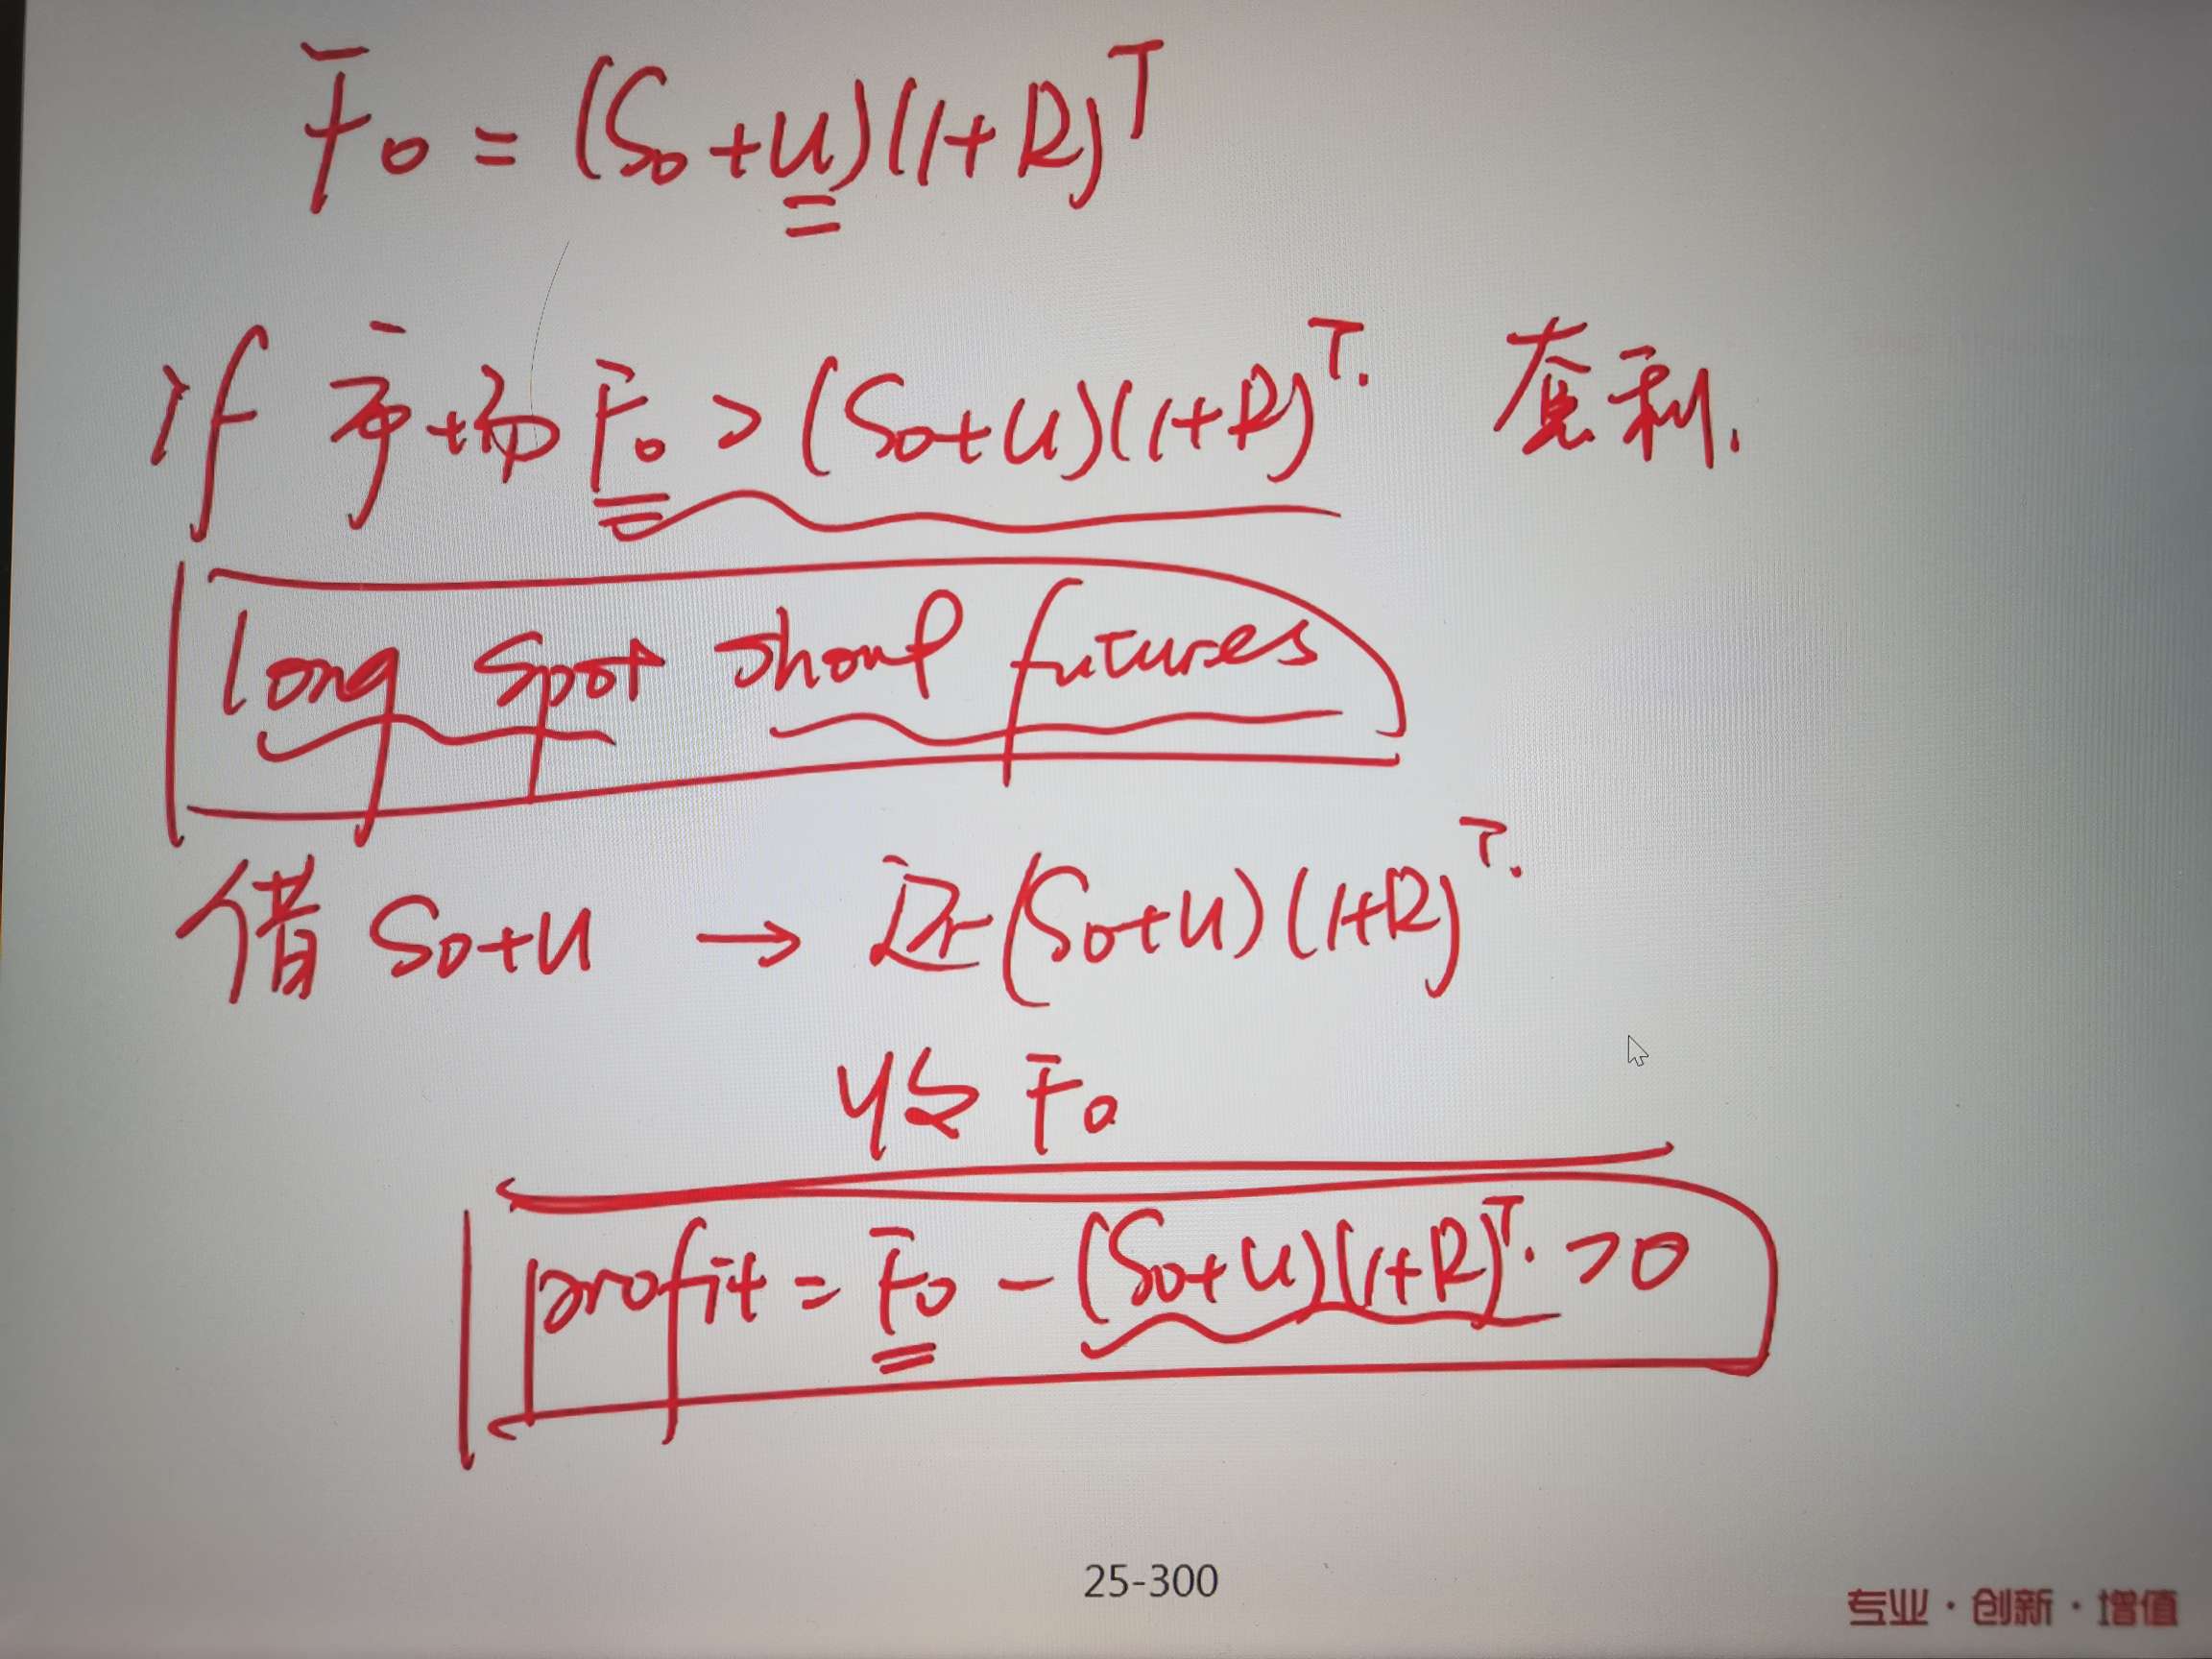 F₀ = (S₀+U)(1+R)ᵀ
if 市场 F₀ > (S₀+U)(1+R)ᵀ. 套利.
long spot short futures
借 S₀+U → 还(S₀+U)(1+R)ᵀ.
收 F₀
profit = F₀ - (S₀+U)(1+R)ᵀ. >0
25-300
专业·创新·增值